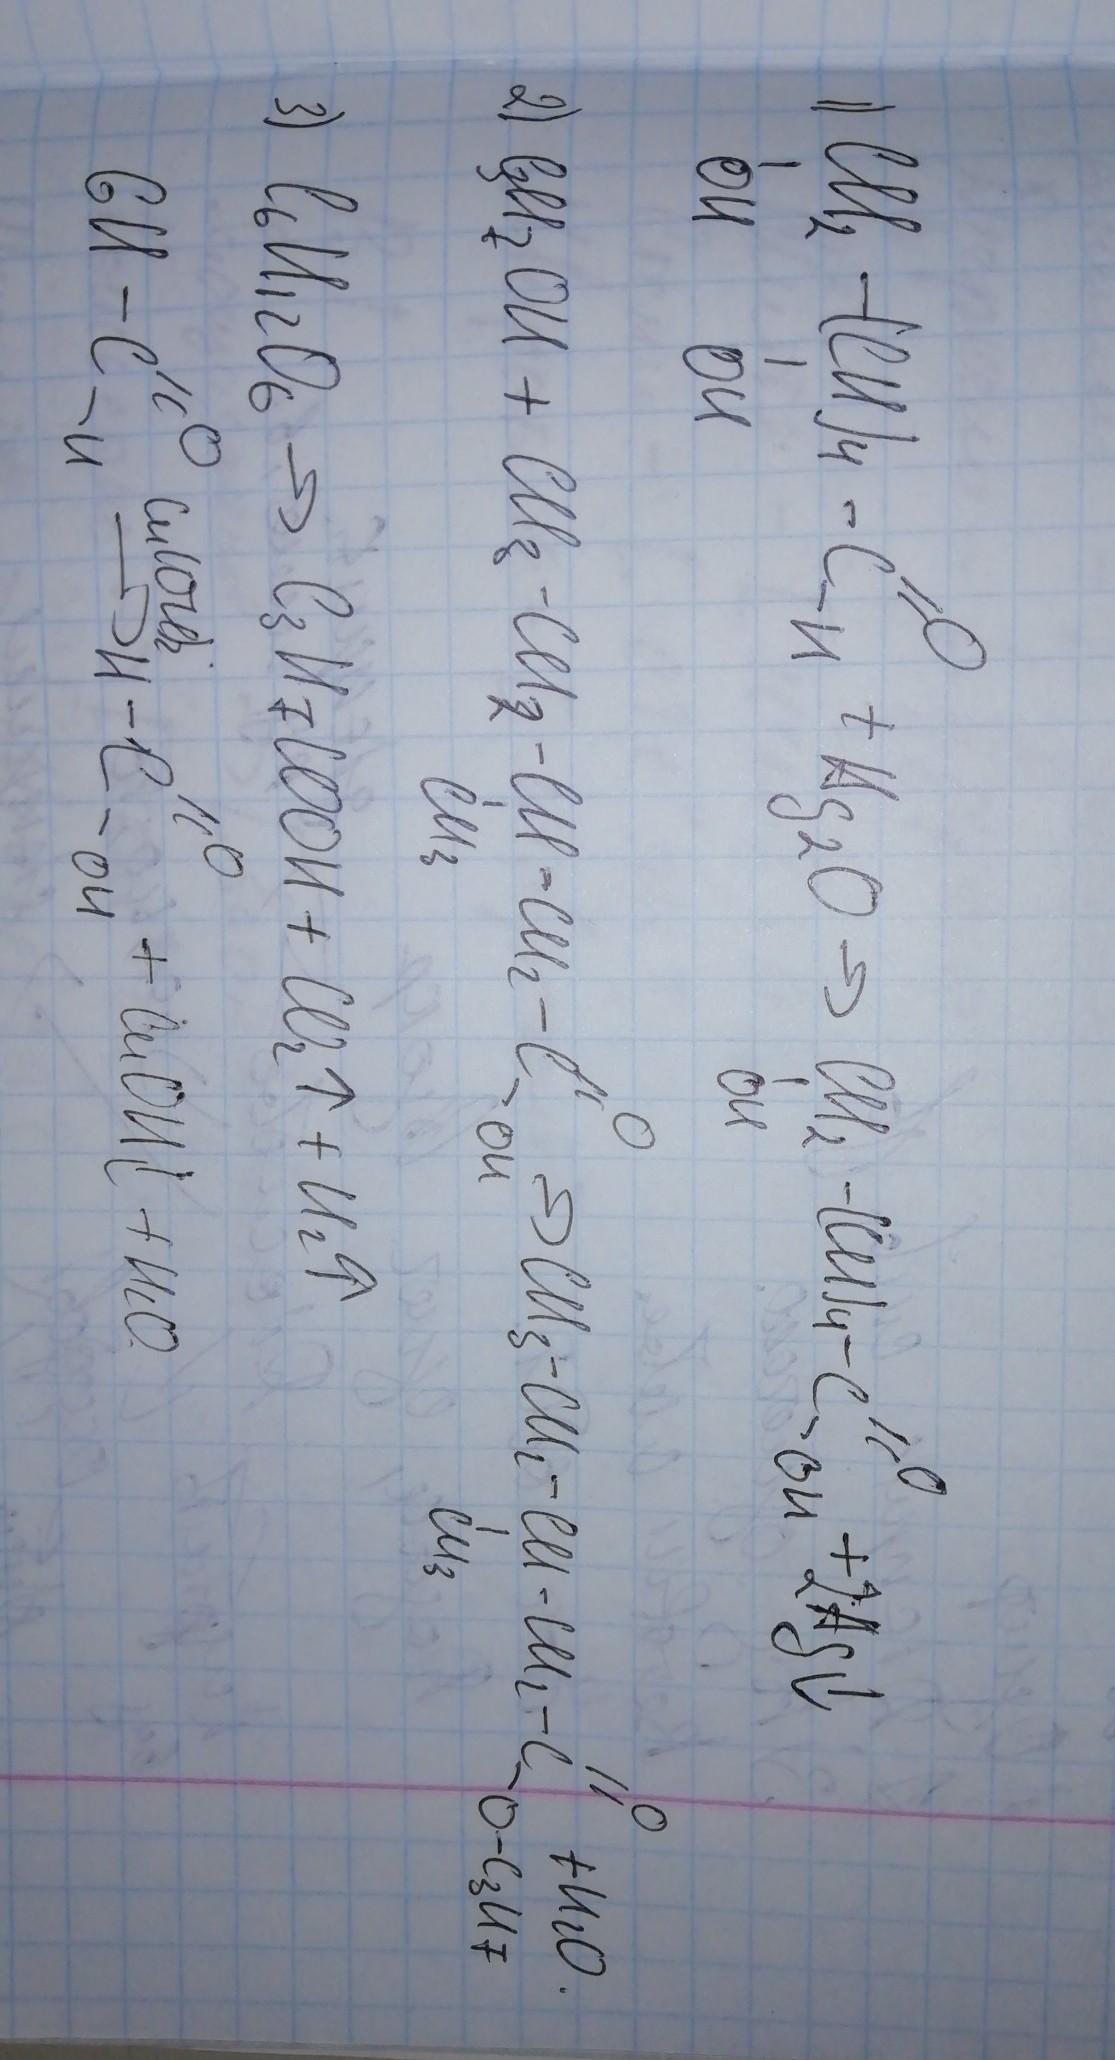 1) CH₂ – (CH)₄ – C =O –H + Ag₂O → CH₂ – (CH)₄ – C =O –OH + 2Ag↓
OH OH OH
2) C₃H₇OH + CH₃ – CH₂ – CH – CH₂ – C =O –OH → CH₃ – CH₂ – CH – CH₂ – C =O –O–C₃H₇ + H₂O.
CH₃ CH₃
3) C₆H₁₂O₆ → C₃H₇COOH + CO₂↑ + H₂↑
– C =O –H Cu(OH)₂ → H – C =O –OH + CuOH↓ + H₂O